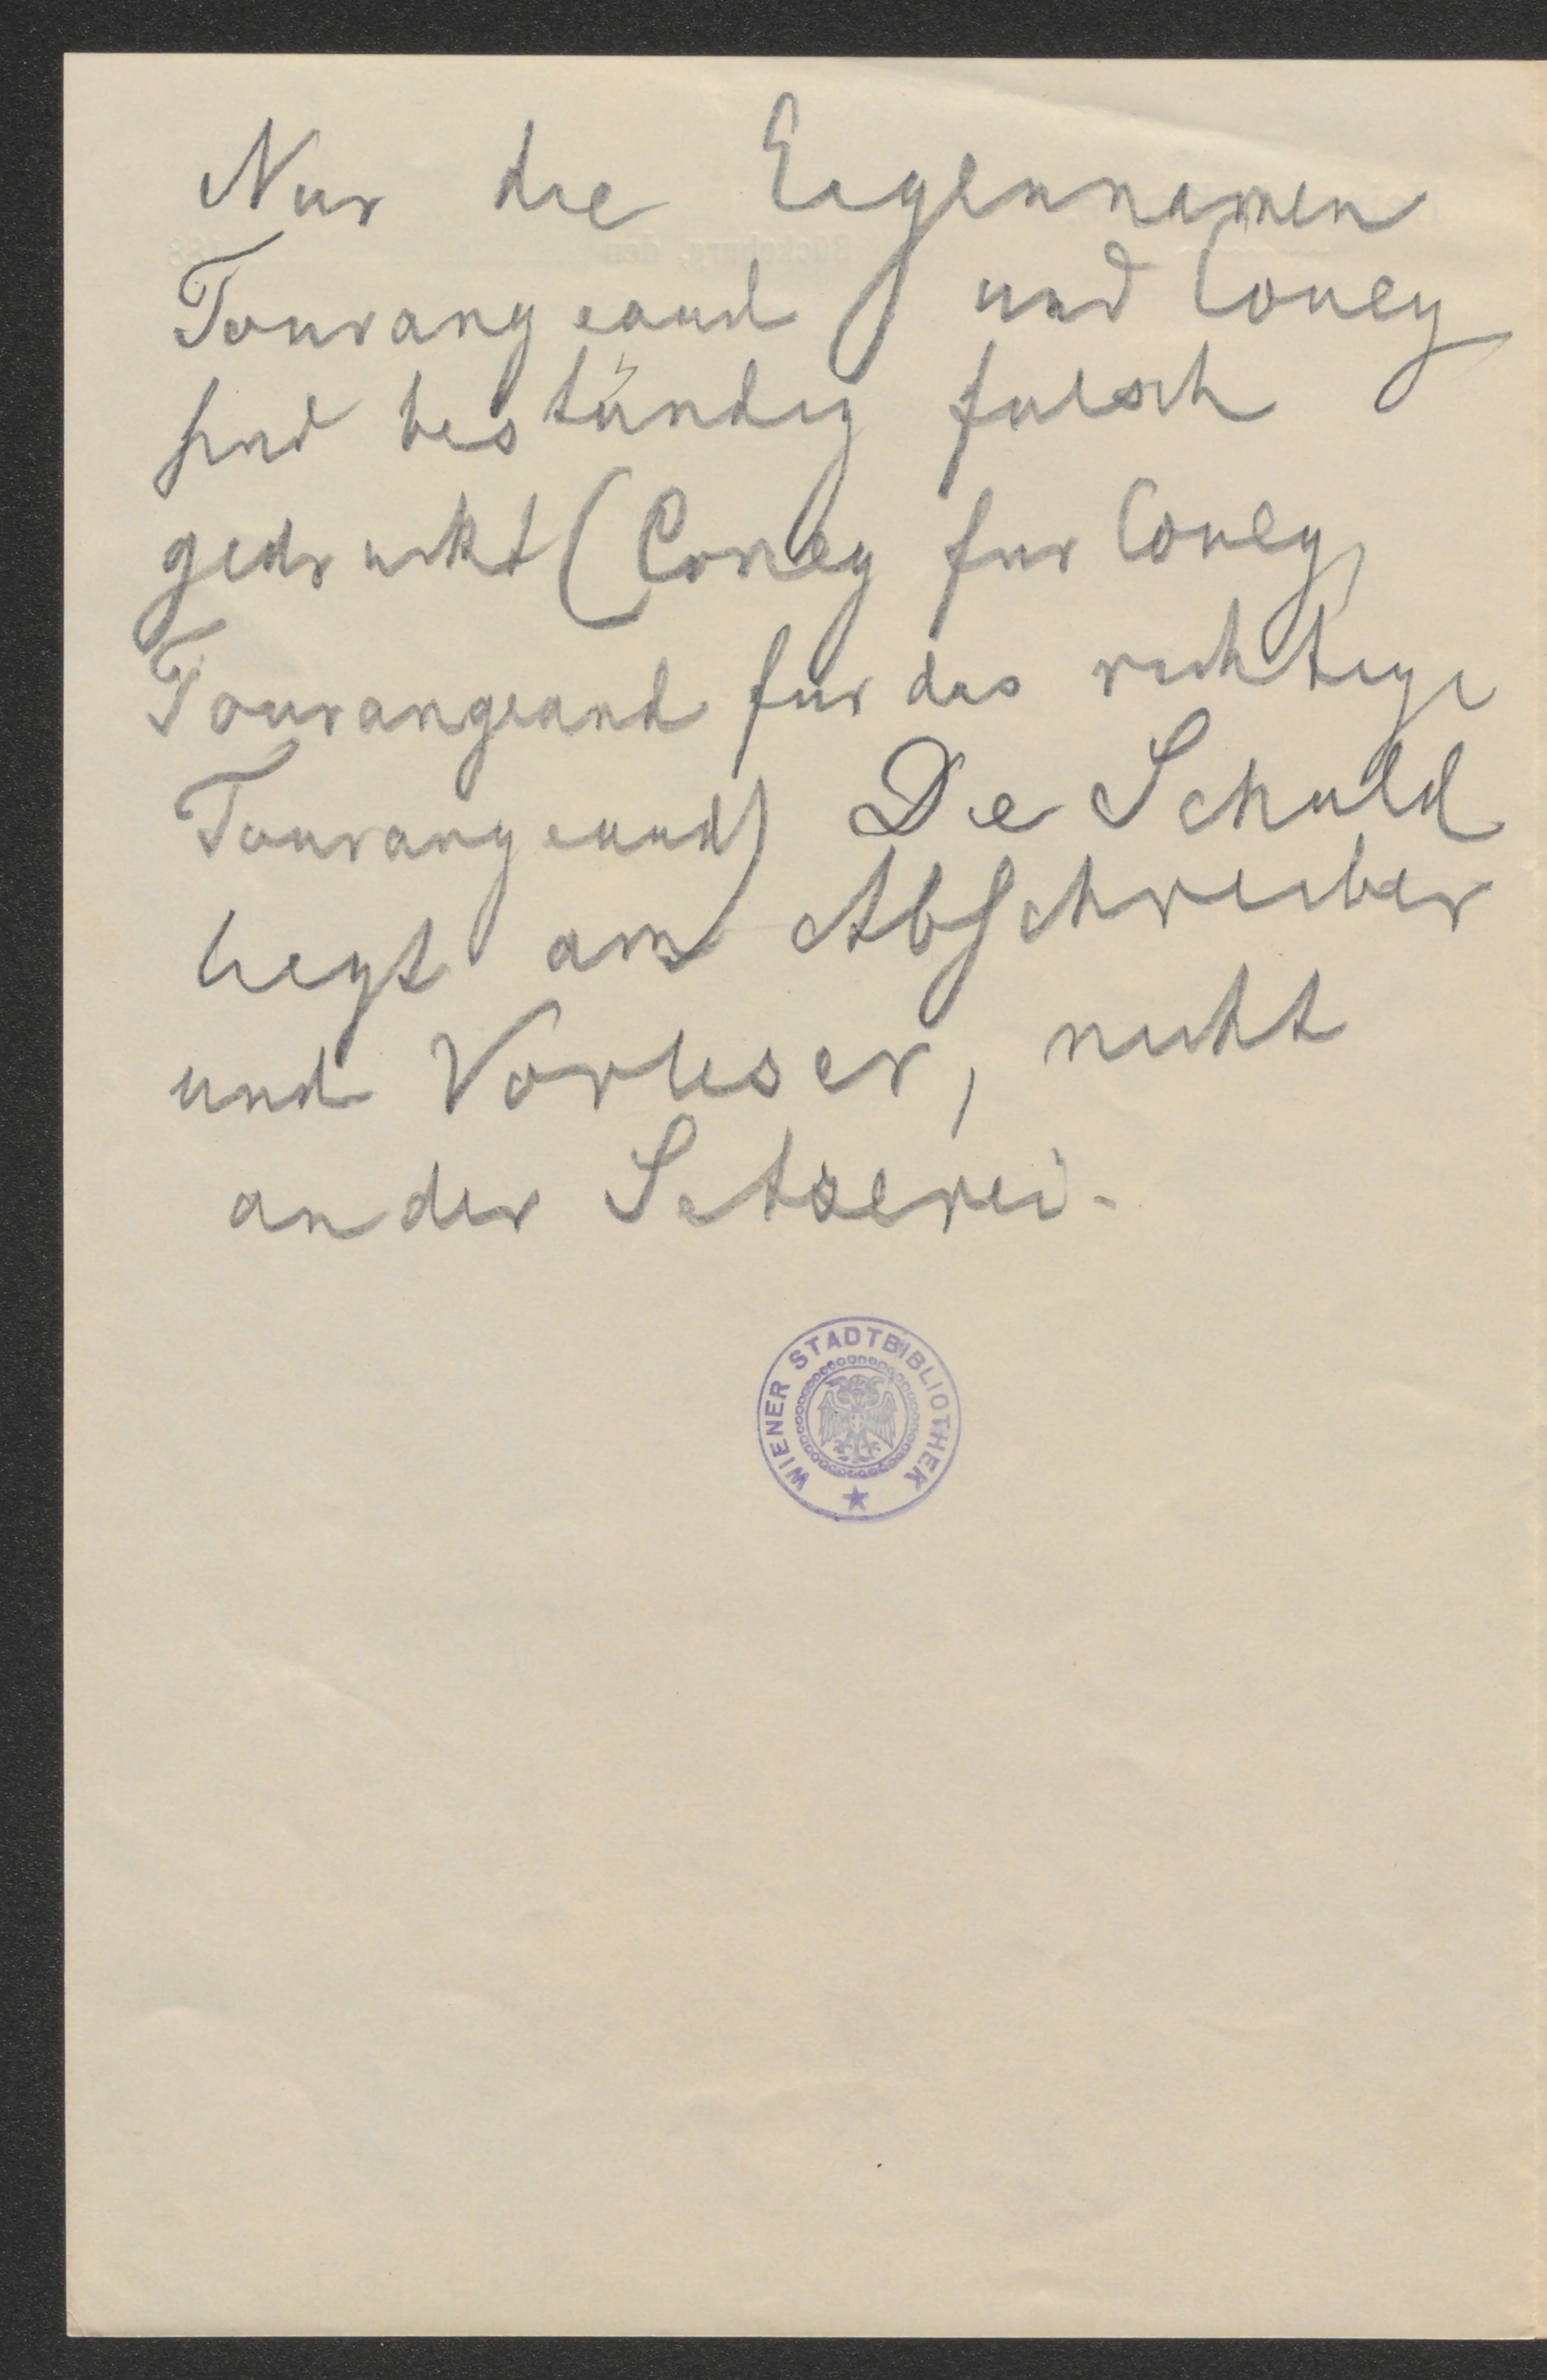 Nur die Eigennamen
Tourangeaud und Couey
sind beständig falsch
gedruckt (Coney für Couey,
Tourangeand für das richtige
Tourangeaud) Die Schuld
liegt am Abschreiber
und Vorleser, nicht
an der Setzerei.
WIENER STADTBIBLIOTHEK